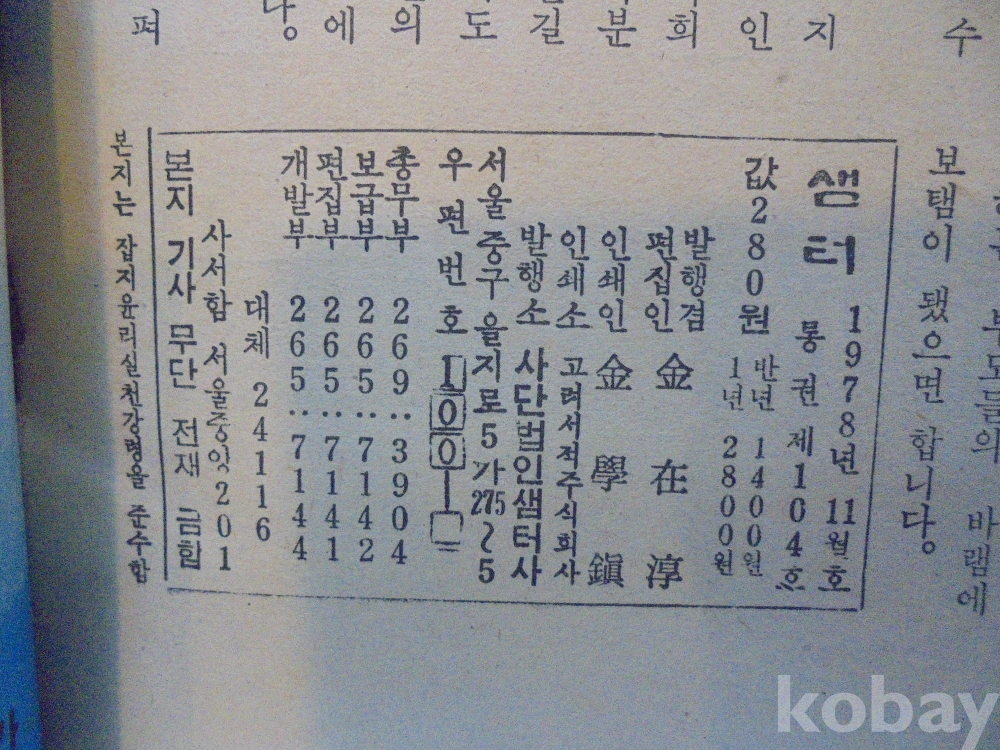 수
보탬이 됐으면 합니다.
바램에
샘터
1978년 11월호
통권 제104호
값280원
반년 1400원
1년 2800원
발행겸
편집인 金在淳
인쇄인 金學鎭
인쇄소 고려서적주식회사
발행소 사단법인샘터사
서울중구을지로5가275~5
우편번호 100-
총무부 269··3904
보급부 265··7142
편집부 265··7141
개발부 265··7144
대체 24116
사서함 서울중앙201
본지 기사 무단 전재 금함
본지는 잡지윤리실천강령을 준수함
kobay